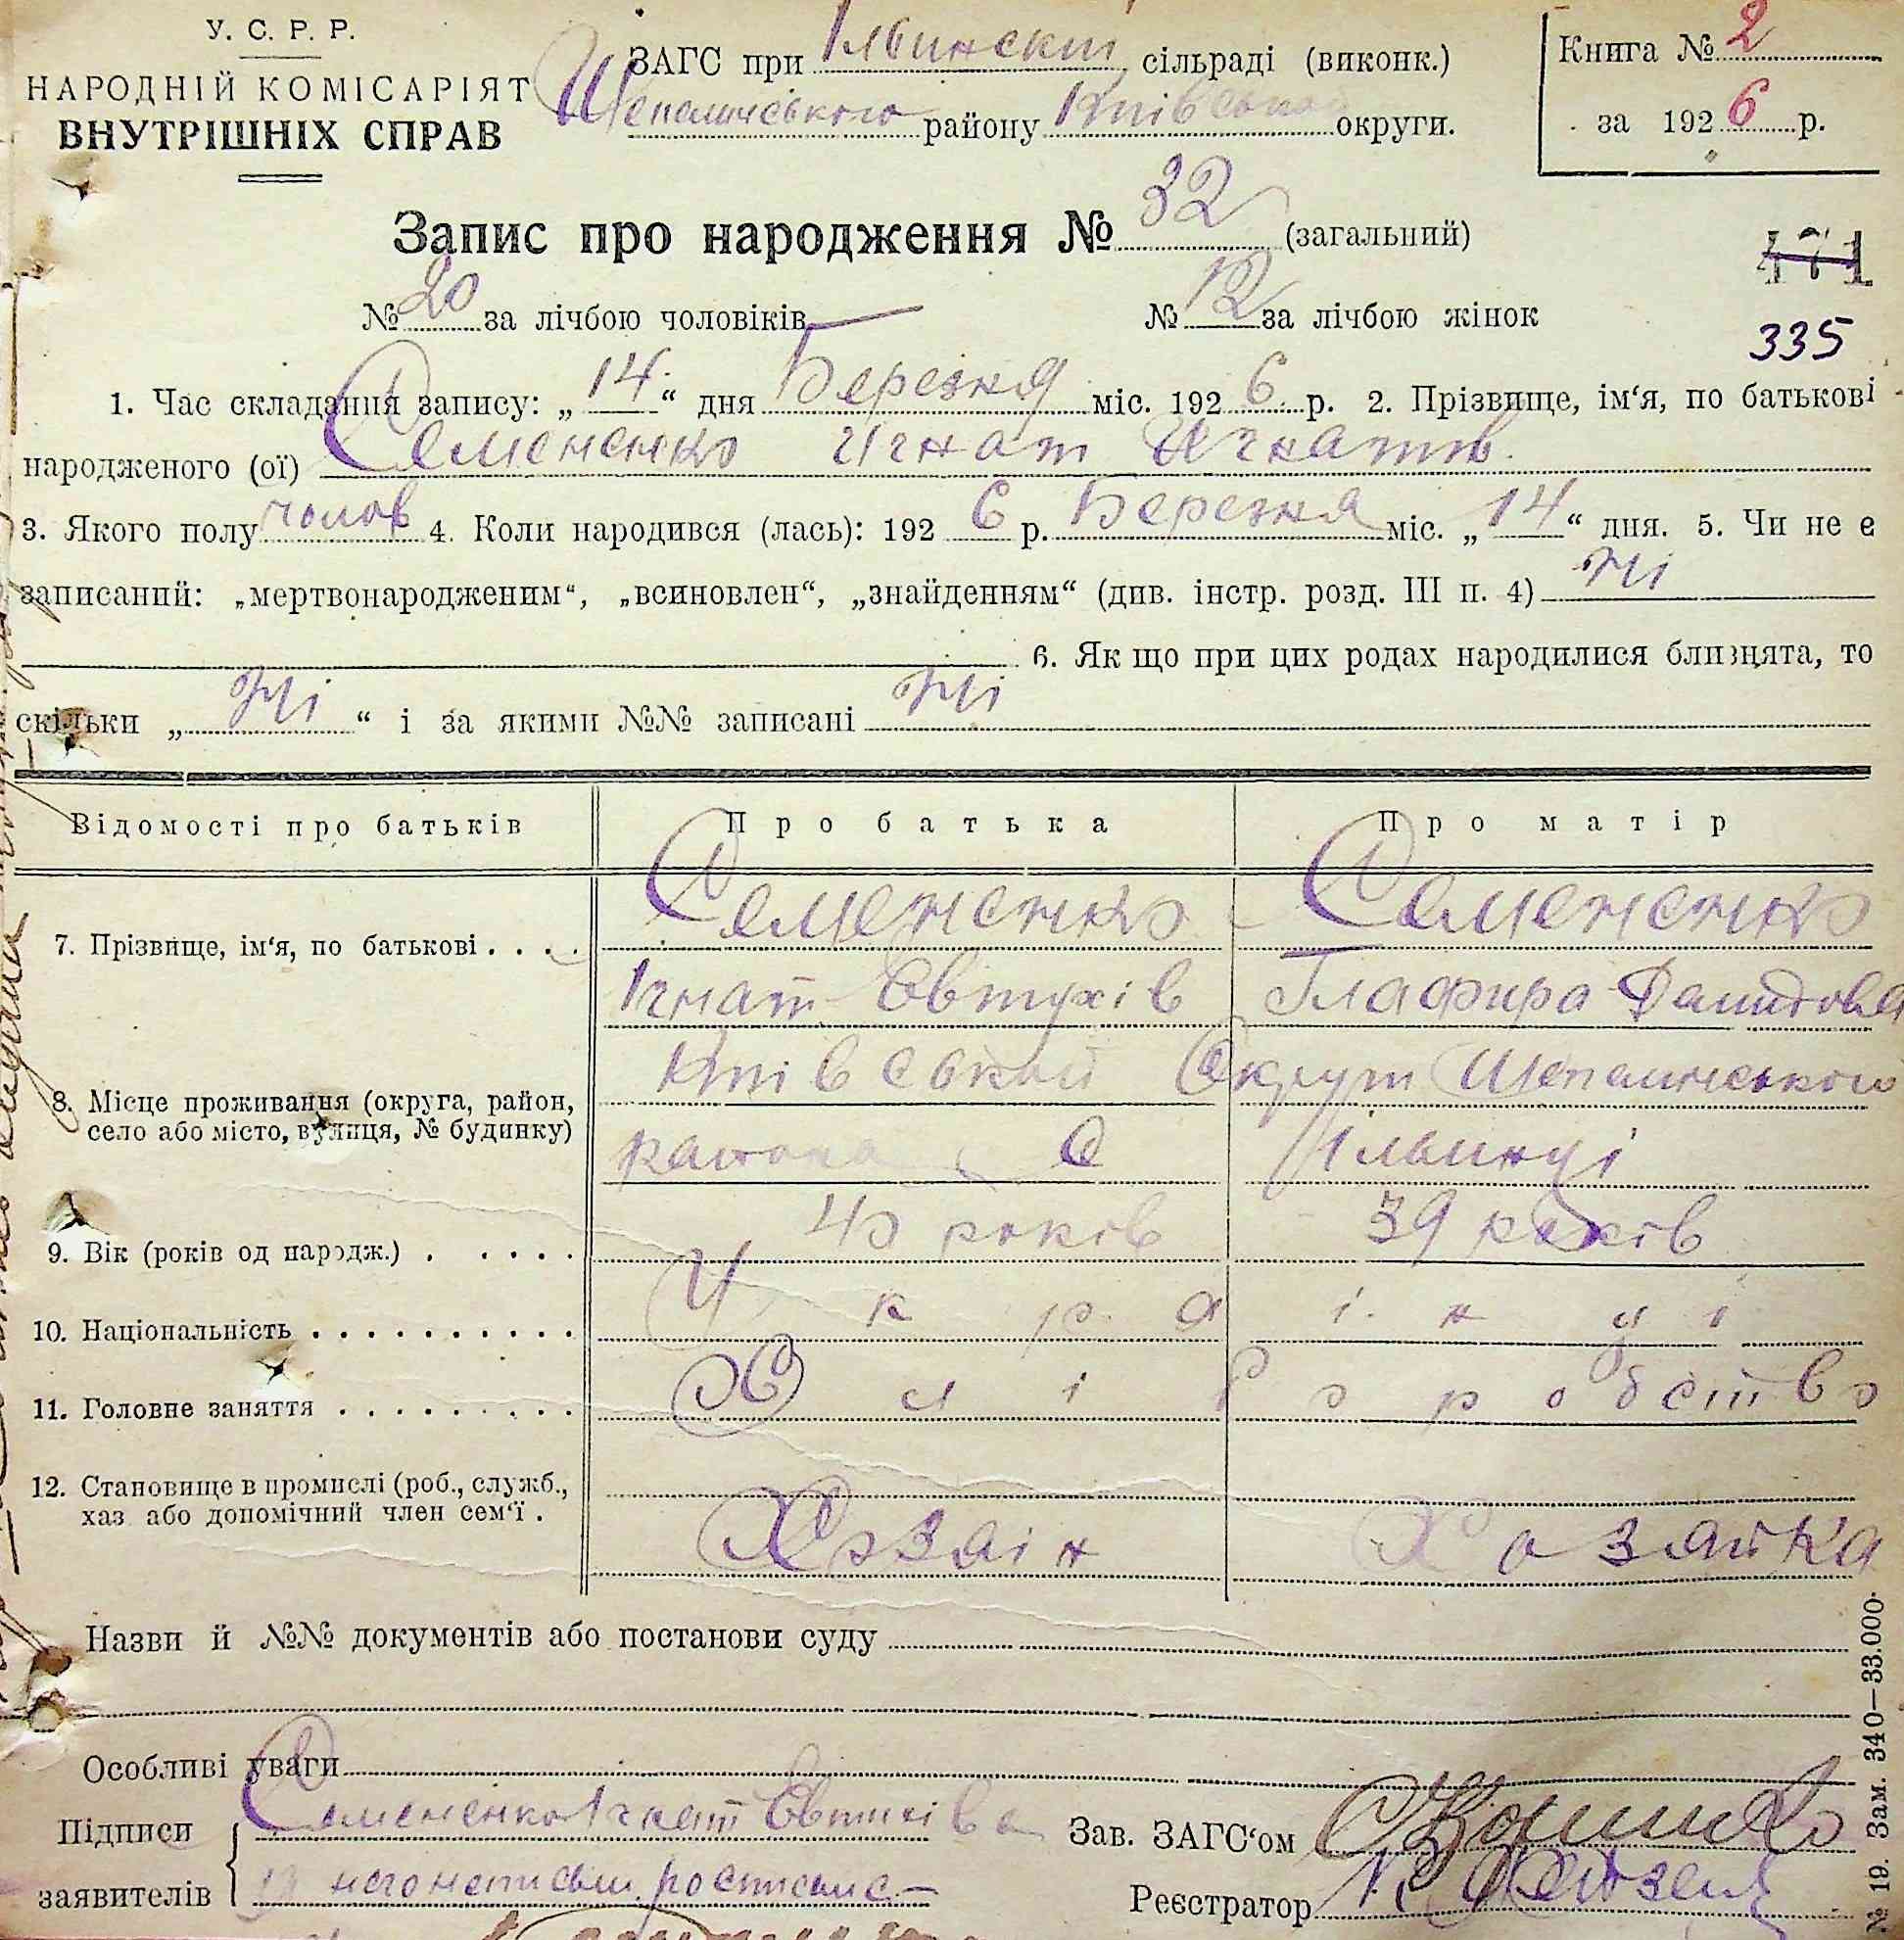 У. С. Р. Р.
НАРОДНІЙ КОМІСАРІЯТ
ВНУТРІШНІХ СПРАВ
ЗАГС при Ільинскій сільраді (виконк.)
Шепелическього району Київської округи.
Книга № 2
за 1926 р.
Запис про народження № 32 (загальний)
471
№ 20 за лічбою чоловіків № 12 за лічбою жінок
335
1. Час складання запису: „14“ дня Березня міс. 1926 р. 2. Прізвище, ім‘я, по батькові
народженого (ої) Семененко Игнат Игнатів.
3. Якого полу чолов 4. Коли народився (лась): 1926 р. Березня міс. „14“ дня. 5. Чи не є
записаний: „мертвонародженим“, „всиновлен“, „знайденням“ (див. інстр. розд. III п. 4) Ні
6. Як що при цих родах народилися близнята, то
скільки „Ні“ і за якими №№ записані Ні
Відомості про батьків Про батька Про матір
7. Прізвище, ім‘я, по батькові . . . . Семененко Семененко
Ігнат Овтухів Глафира Демидова
8. Місце проживання (округа, район,
село або місто, вулиця, № будинку)
Київській Окрути Шепелическього
района С Ільинці
9. Вік (років од народж.) . . . . . 40 років 39 років
10. Національність . . . . . . . . . . . Українці
11. Головне заняття . . . . . . . . . Хліборобство
12. Становище в промислі (роб., служб.,
хаз або допомічний член сем‘ї . Хозаін Хозяйка
Назви й №№ документів або постанови суду
Особливі уваги
Підписи
заявителів
Семененко Ігнат
Зав. ЗАГС‘ом
Реєстратор
№ 19. Зам. 340—33.000.